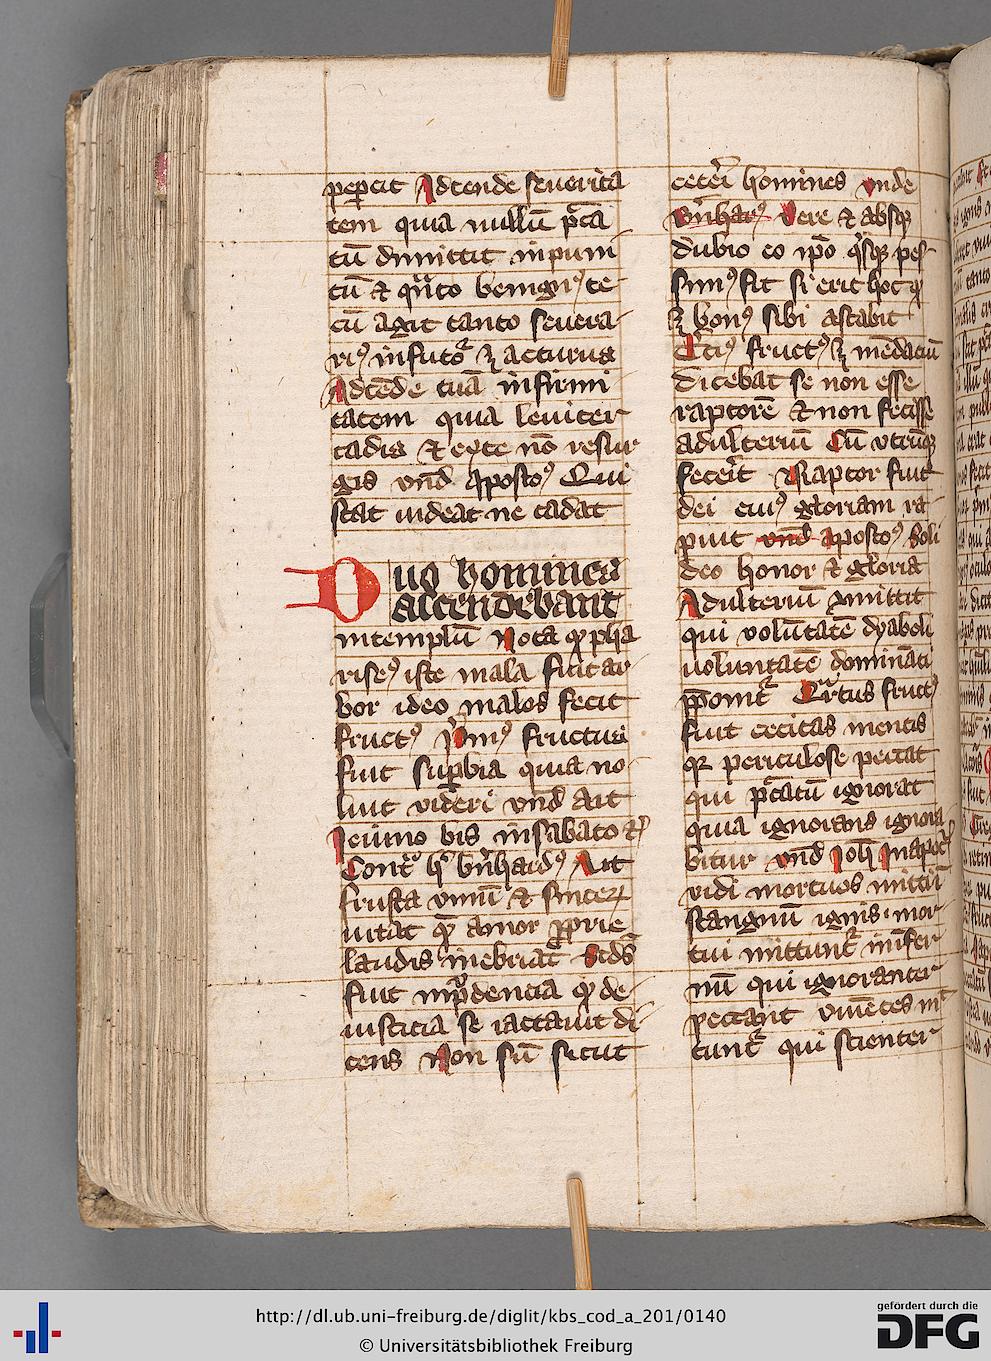 pepercit Adtende seuerita
tem quia nullū pctā
tū dimittit inpuni
tū & qñto benigniꝰ te
cū agit tanto seuera
riꝰ infutoꝝ acturus
Adtēde tuā infirmi
tatem quia leuiter
cadis & nō resur
gis vnd apostoꝰ Qui
stat uideat ne cadat
Duo homines
ascendebant
intemplū Nota ꝙ pha
riseꝰ iste mala fuit ar
bor ideo malos fecit
fructꝰ pⁱmꝰ fructus
fuit supbia quia no
luit videri vnd Ait
Jeiuno bis insabato
bñhardꝰ Ait
frusta &
uitat amor pprie
laudis inebriat Scds
fuit inpdencia ꝙ de
iusticia se iactauit di
cens Non sū sicut
ceteri homines vnde
bñhar Vere & absqꝫ
dubio eo ipo qsqꝫ pes
simꝰ fit si erit hoc
bonꝰ sibi astabit
fructꝰ mēdaciū
dicebat se non esse
raptorē & non fecisse
adulteriū Cū vtrūqꝫ
fecerit Raptor fuit
dei eiuꝰ gloriam ra
puit vnd apostoꝰ Soli
deo honor & gloria
Adulteriū committit
qui voluntatē dyaboli
uoluntatē dominati
Qrtus fructꝰ
fuit cecitas mentis
periculose peccat
qui pctātū ignorat
quia ignorans ignora
bitur vnd Joh Inapoc
vidi mortuos mitti ī
stangnū ignis mor
tui mittunt̄ infer
nū qui ignoranter
peccant viuētes mⁱt
tunt̄ qui scienter
http://dl.ub.uni-freiburg.de/diglit/kbs_cod_a_201/0140
© Universitätsbibliothek Freiburg
gefördert durch die
DFG